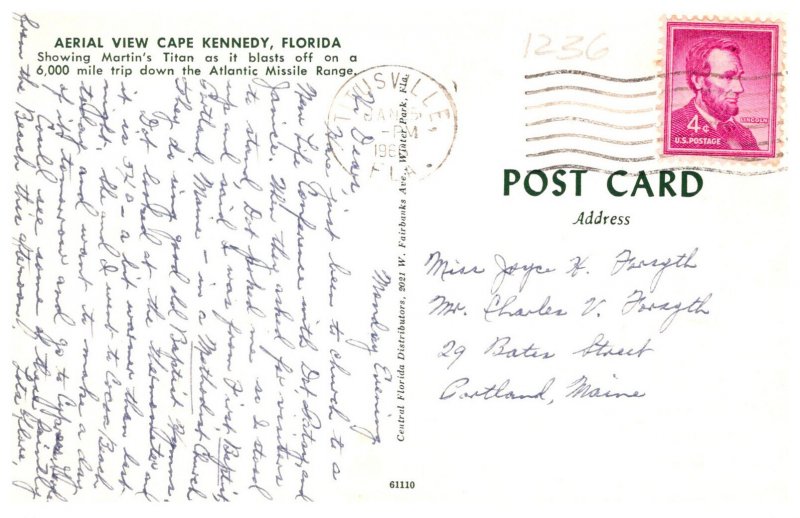 AERIAL VIEW CAPE KENNEDY, FLORIDA
Showing Martin's Titan as it blasts off on a
6,000 mile trip down the Atlantic Missile Range.
Monday Evening
Dears,
Have just been to church to a
New Life Conference with Dot, and
Janice. When they asked for visitors
to stand, Dot poked me so I stood
up and said I was from First Baptist,
Portland, Maine - in a Methodist Church
They do sing good old Baptist Hymns.
Dot looked at the thermometer and
it is 52° - a bit warmer than last
night. He and I went to Cocoa Beach
today and want to make a day
of it tomorrow and go to Cypress
Could see some of this faintly
from the Beach this afternoon. Love,
Central Florida Distributors, 2021 W. Fairbanks Ave., Winter Park, Fla.
61110
TITUSVILLE,
JAN
PM
FLA.
1236
4¢
LINCOLN
U.S. POSTAGE
POST CARD
Address
Miss Joyce H. Forsyth
Mr. Charles V. Forsyth
29 Bates Street
Portland, Maine